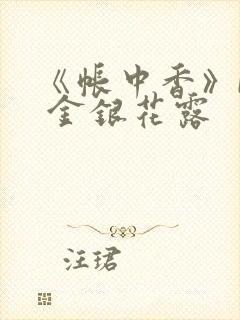 《帐中香》
金银花露
汪珺